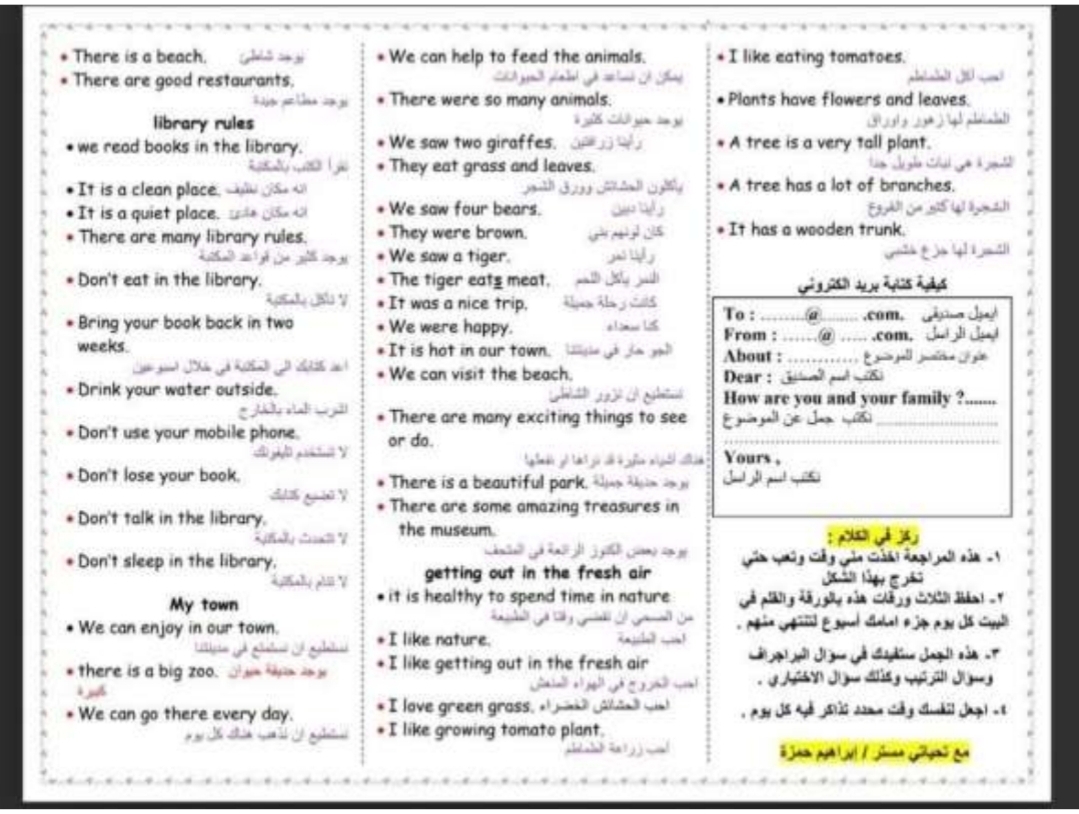 • There is a beach. يوجد شاطئ
• There are good restaurants.
يوجد مطاعم جيدة
library rules
• we read books in the library.
نقرأ الكتب بالمكتبة
• It is a clean place. انه مكان نظيف
• It is a quiet place. انه مكان هادئ
• There are many library rules.
يوجد كثير من قواعد المكتبة
• Don't eat in the library.
لا تأكل بالمكتبة
• Bring your book back in two
weeks.
اعد كتابك الى المكتبة في خلال اسبوعين
• Drink your water outside.
اشرب الماء بالخارج
• Don't use your mobile phone.
لا تستخدم تليفونك
• Don't lose your book.
لا تضيع كتابك
• Don't talk in the library.
لا تتحدث بالمكتبة
• Don't sleep in the library.
لا تنام بالمكتبة
My town
• We can enjoy in our town.
نستطيع ان نستمتع في مدينتنا
• there is a big zoo. يوجد حديقة حيوان
كبيرة
• We can go there every day.
نستطيع ان نذهب هناك كل يوم
• We can help to feed the animals.
يمكن ان نساعد في اطعام الحيوانات
• There were so many animals.
يوجد حيوانات كثيرة
• We saw two giraffes. رأينا زرافتين
• They eat grass and leaves.
يأكلون الحشائش وورق الشجر
• We saw four bears. رأينا دببين
• They were brown. كان لونهم بني
• We saw a tiger. رأينا نمر
• The tiger eats meat. النمر يأكل اللحم
• It was a nice trip. كانت رحلة جميلة
• We were happy. كنا سعداء
• It is hot in our town. الجو حار في مدينتنا
• We can visit the beach.
نستطيع ان نزور الشاطئ
• There are many exciting things to see
or do.
هناك أشياء مثيرة قد نراها او نفعلها
• There is a beautiful park. يوجد حديقة جميلة
• There are some amazing treasures in
the museum.
يوجد بعض الكنوز الرائعة في المتحف
getting out in the fresh air
• it is healthy to spend time in nature
من الصحي ان نقضي وقتا في الطبيعة
• I like nature. احب الطبيعة
• I like getting out in the fresh air
احب الخروج في الهواء المنعش
• I love green grass. احب الحشائش الخضراء
• I like growing tomato plant.
أحب زراعة الطماطم
• I like eating tomatoes.
احب أكل الطماطم
• Plants have flowers and leaves.
الطماطم لها زهور واوراق
• A tree is a very tall plant.
الشجرة هي نبات طويل جدا
• A tree has a lot of branches.
الشجرة لها كثير من الفروع
• It has a wooden trunk.
الشجرة لها جزع خشبي
كيفية كتابة بريد الكتروني
To : ........@....... .com. ايميل صديقي
From : ......@ ..... .com. ايميل الراسل
About : ............ عنوان مختصر للموضوع
Dear : نكتب اسم الصديق
How are you and your family ?.......
نكتب جمل عن الموضوع ........................
......................................................
Yours ,
نكتب اسم الراسل
ركز في الكلام :
١- هذه المراجعة اخذت مني وقت وتعب حتي
تخرج بهذا الشكل
٢- احفظ الثلاث ورقات هذه بالورقة والقلم في
البيت كل يوم جزء امامك أسبوع لتنتهي منهم .
٣- هذه الجمل ستفيدك في سؤال البراجراف
وسؤال الترتيب وكذلك سؤال الاختياري .
٤- اجعل لنفسك وقت محدد تذاكر فيه كل يوم .
مع تحياتي مستر / إبراهيم حمزة